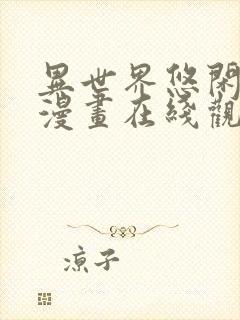 異世界悠閑
漫畫在綫觀
涼子